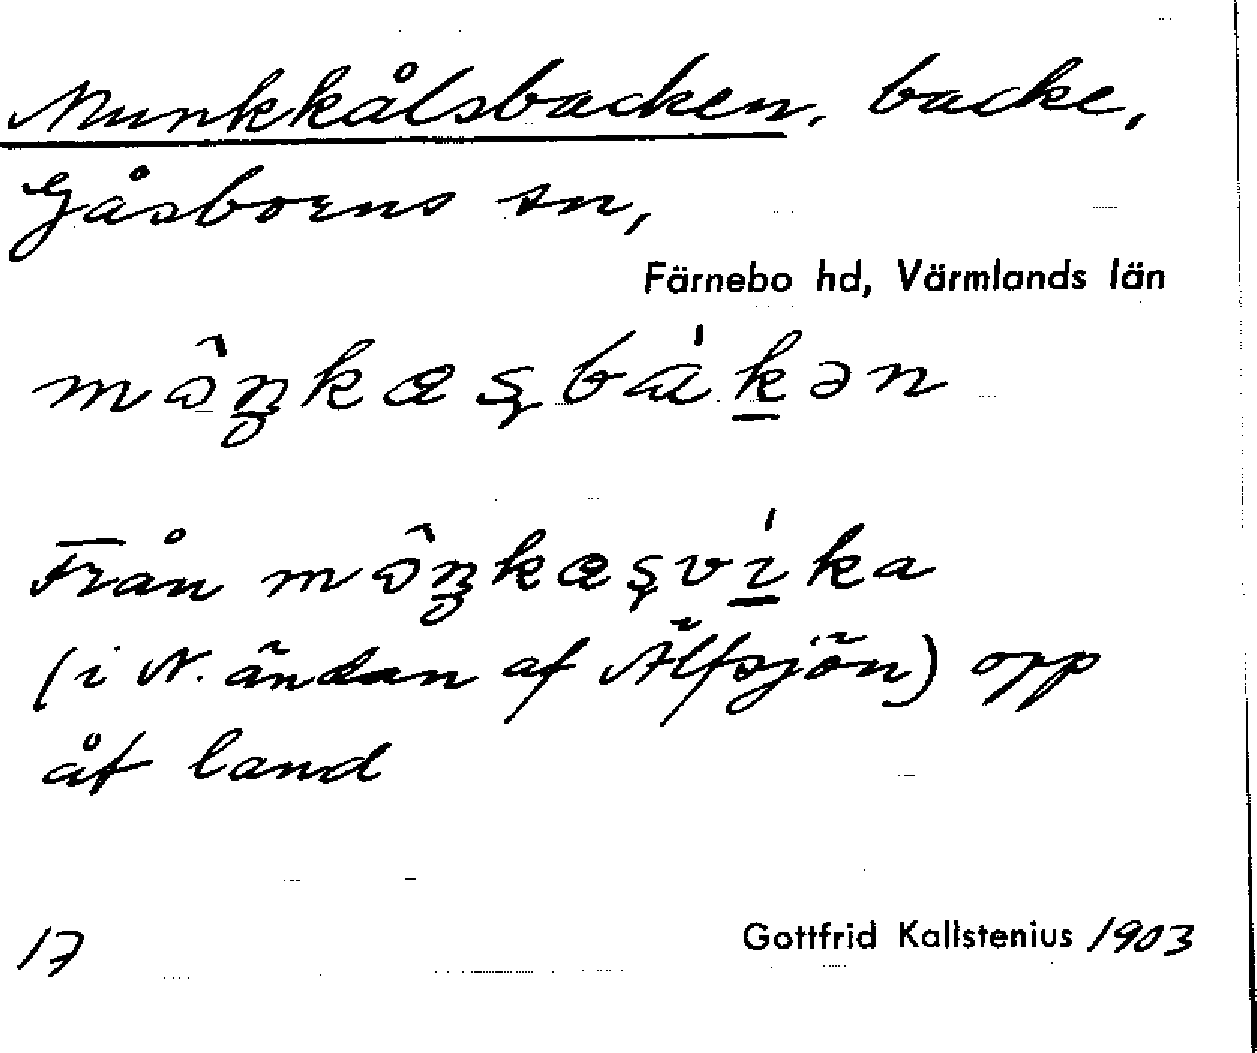 Munkkålsbacken, backe,
Gåsborns sn,
Färnebo hd, Värmlands län
mɔ̂ŋkæșbáḵən
Från mɔ̂ŋkæșví̱ka
(i N. ändan af Älfsjön) opp
åt land
17
Gottfrid Kallstenius 1903